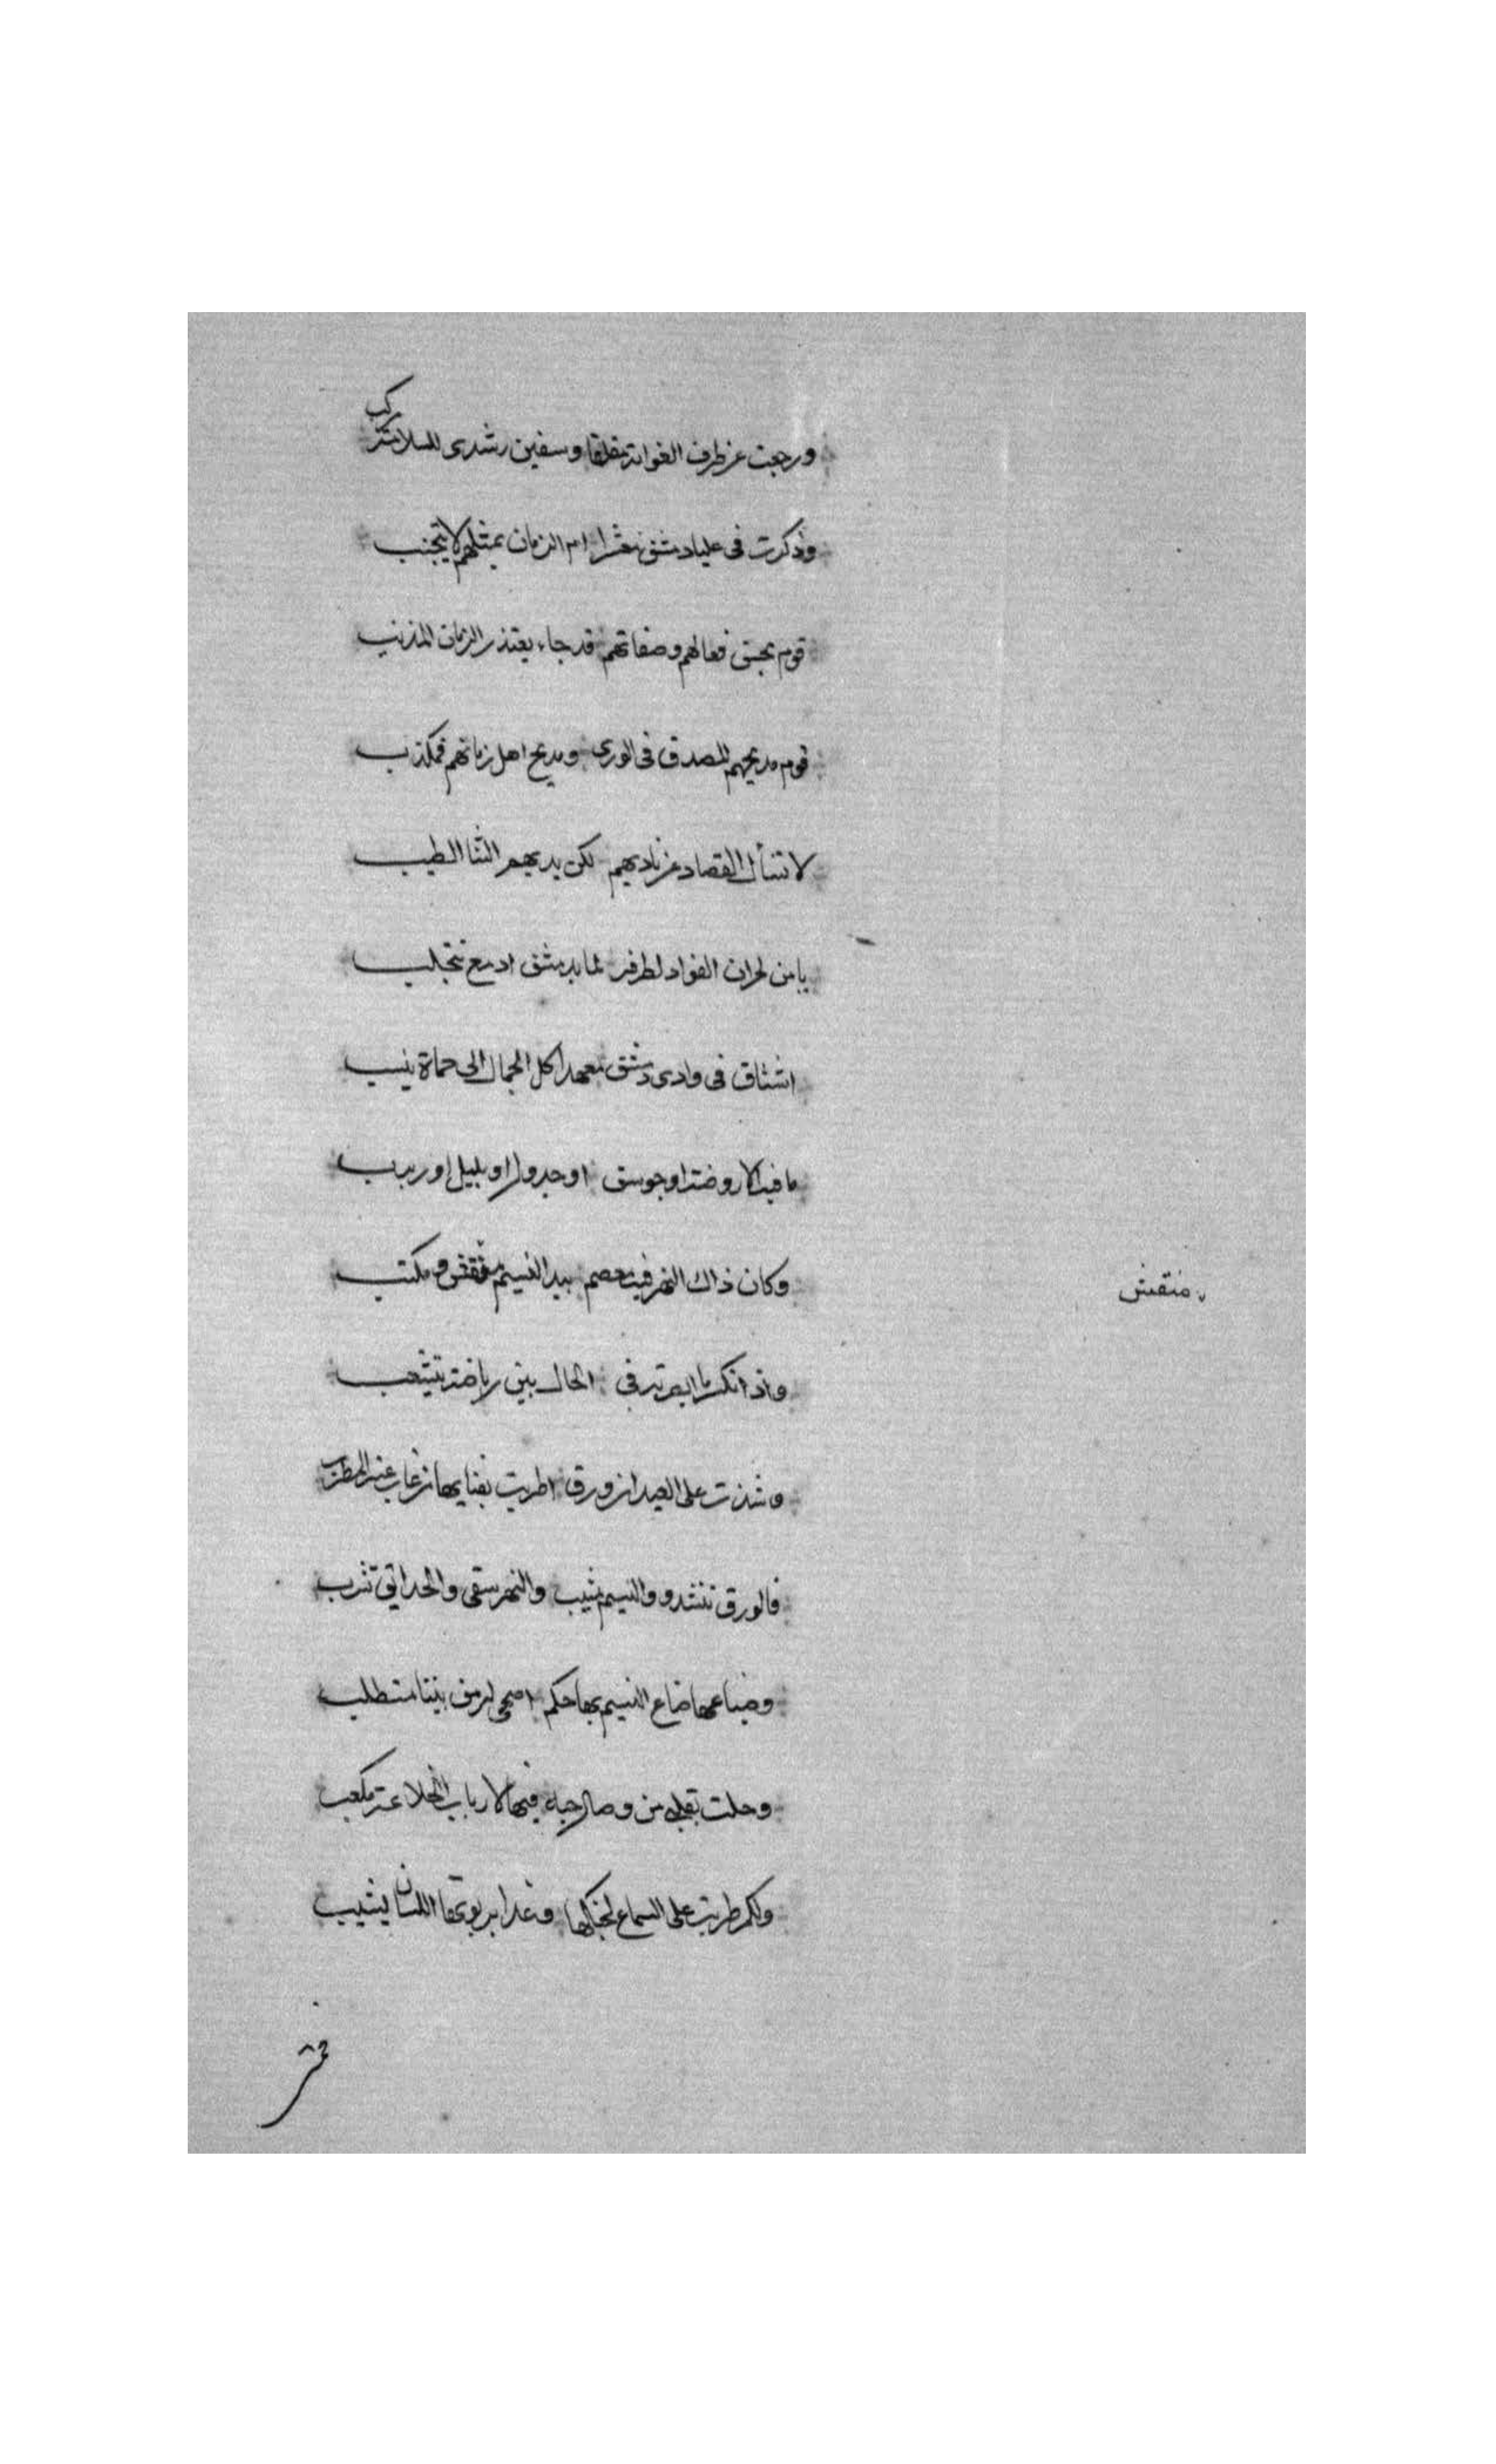 ورجعت عن طرف الغواية مقلعا وسفين رشدى للسلامة تركب
وذكرت فى علياد مشق معشرا ام الزمان بمثلهم لا تنجب
قوم بحسن فعالهم وصفاتهم قد جاء يعتذر الزمان المذنب
قوم مديحهم المصدق فى الورى ومديح اهل زمانهم فمكذب
لا تسأل القصاد عن ناديهم لكن يديهم الثنا الطيب
يا من لحران الفواد لطرفه لما بدمشق ادمع تتحلب
اشتاق فى وادى دمشق معهدا كل الجمال الى حماة ينسب
ما فيه الا روضة او جوسق او جدول او بلبل او ربرب
وكان ذاك النهر فيه معصم بيد النسيم منقش ومكتب
منقش
واذا تكسر ما ابصرته فى الحال بين رياضه يتشعب
وشدت على العيدان ورق اطربت بغنايها من غاب عنه المطرب
فالورق تنشد والنسيم مشبب والنهر يسقى والحدائق تشرب
وضياعها ضاع النسيم بها فكم اضحى له من بيننا متطلب
وحلت بقلبى من وصال حبه فيها لارباب الخلاعة ملعب
ولكم طربت على السماع لجنكها وغدا بربوتها اللسان يشبب